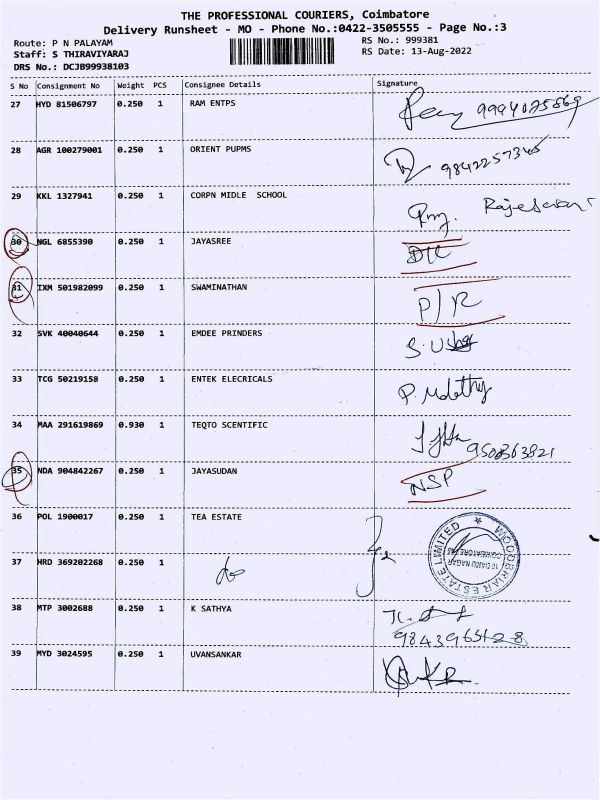 THE PROFESSIONAL COURIERS, Coimbatore
Delivery Runsheet - MO - Phone No.:0422-3505555 - Page No.:3
Route: P N PALAYAM
RS No.: 999381
Staff: S THIRAVIYARAJ
RS Date: 13-Aug-2022
DRS No.: DCJB99938103
S No Consignment No Weight PCS Consignee Details Signature
27 HYD 81506797 0.250 1 RAM ENTPS
28 AGR 100279001 0.250 1 ORIENT PUPMS 9842257345
29 KKL 1327941 0.250 1 CORPN MIDLE SCHOOL
30 NGL 6855390 0.250 1 JAYASREE
31 IXM 501982099 0.250 1 SWAMINATHAN P/R
32 SVK 40040644 0.250 1 EMDEE PRINDERS
33 TCG 50219158 0.250 1 ENTEK ELECRICALS
34 MAA 291619869 0.930 1 TEQTO SCENTIFIC
35 NDA 904842267 0.250 1 JAYASUDAN NSP
36 POL 1900017 0.250 1 TEA ESTATE
37 HRD 369202268 0.250 1 do
38 MTP 3002688 0.250 1 K SATHYA
39 MYD 3024595 0.250 1 UVANSANKAR